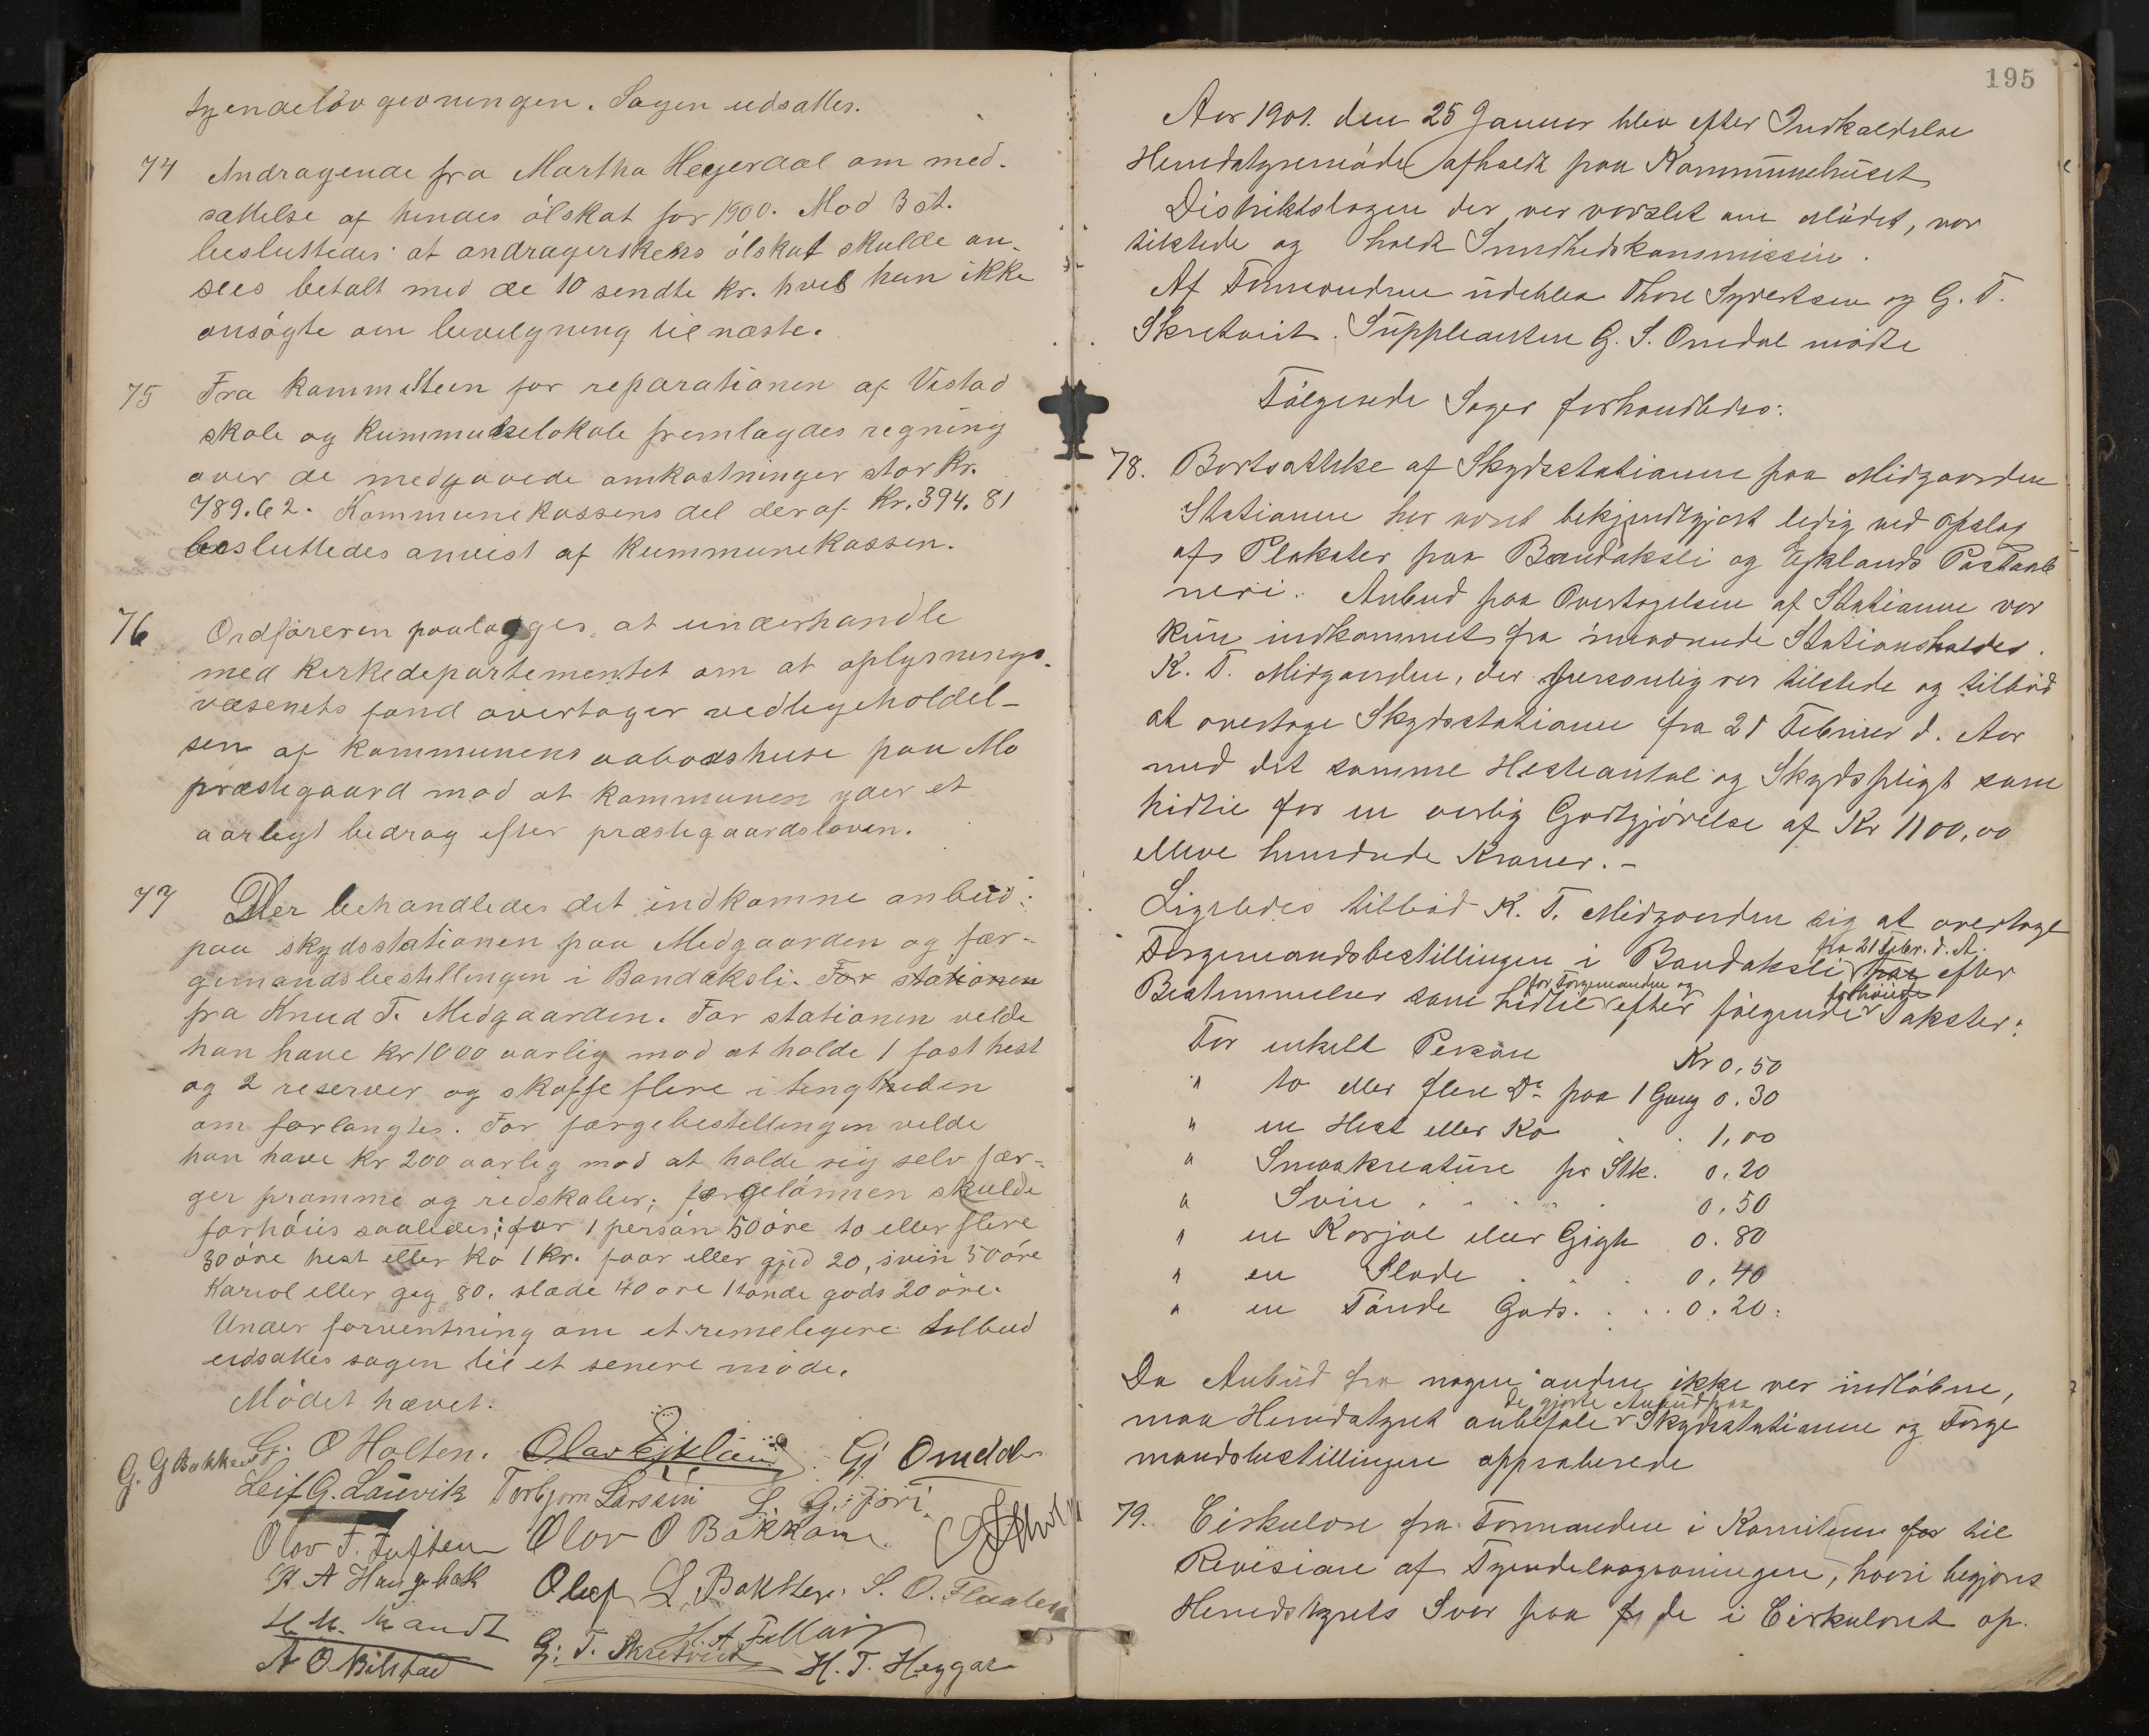 tyendelovgevningen. Sagen udsattes.
74 Andragende fra Martha Heyerdal om ned-
sættelse af hendes ölskat for 1900. Mod 3 st.
besluttedes at andragerskens ölskat skulde an-
sees betalt med de 10 sendte kr. hvis hun ikke
ansögte om bevilgning til næste.
75 Fra kommiteen for reparationen af Vistad
skole og kummunelokale fremlagdes regning
over de medgaaede omkostninger stor kr.
789.62. Kommunekassens del deraf kr. 394.81
besluttedes anvist af kummunekassen.
76 Ordföreren paalægges at underhandle
med kirkedepartementet om at oplysnings-
væsenets fond overtager vedligeholdel-
sen af kommunens aabodshuse paa Mo
præstegaard mod at kommunen yder et
aarligt bedrag efter præstegaardsloven.
77 Der behandledes det indkomne anbud
paa skydsstationen paa Midgaarden og fær-
gemandsbestillingen i Bandaksli. For stationen
fra Knud T. Midgaarden. For stationen vilde
han have kr 1000 aarlig mod at holde 1 fast hest
og 2 reserver og skaffe flere i lengheden
om forlangtes. For færgebestillingen vilde
han have kr 200 aarlig mod at holde sig selv fær-
ger pramme og redskaber; færgelönnen skulde
forhöies saaledes: for 1 person 50 öre to eller flere
30 öre hest eller ko 1 kr. faar eller gjed 20, svin 50 öre
Kariol eller gig 80, slæde 40 öre 1 tönde gods 20 öre.
Under forventning om et rimeligere tilbud
udsattes sagen til et senere möde.
Mödet hævet.
G. G Bakken G. O Holten. Olav Eikland Gj Omdal
Leif G. Lauvik Torbjörn Larssen S. G. Fjöri
Olav T. Tufteen Olav O Bakkane
K A Haugebak Olaf L. Bakken S. O. Flaaten
H. M. Kandt H. A Fallair
A O Bilstad G. T. Skretveit H. T. Heggar
195
Aar 1901. den 25 Januar blev efter Indkaldelse
Herredstyremöde afholdt paa Kommunehuset
Distriktslægen der var varslet om Mödet, var
tilstede og holdt Sundhedskommission.
Af Formændene udeblev Thore Syvertsen og G. T.
Skretveit. Suppleanten G. S. Omdal mödte
Fölgende Sager forhandledes:
78. Bortsættelse af Skydsstationen paa Midgaarden
Stationen har været bekjendtgjort ledig ved Opslag
af Plakater paa Bandaksli og Eiklands Postaab
neri. Anbud paa Overtagelsen af Stationen var
kun indkommet fra nuværende Stationsholder.
K. T. Midgaarden, der personlig var tilstede og tilböd
at overtage Skydsstationen fra 21 Februar d. Aar
med det samme Hesteantal og Skydspligt som
hidtil for en aarlig Godtgjörelse af Kr 1100,00
elleve hundrede Kroner. –
Ligeledes tilböd K. T. Midgaarden sig at overtage
Færgemandsbestillingen i Bandaksli fra 21 Febr. d. A. efter
Bestemmelser som hidtil for Færgemanden og efter fölgende forhöiede Takster:
For enkelt Person Kr 0,50
" to eller flere Do paa 1 Gang 0.30
" en Hest eller Ko . . 1,00
" Smaakreature pr Stk. 0.20
" Svin . . . . . 0,50
" en Karjol eller Gigh 0.80
" en Slæde . . . 0.40
" en Tönde Gods. . . . 0.20.
Da Anbud fra nogen anden ikke var indlöbne,
maa Herredstyret anbefale de gjorte Anbud paa Skydsstationen og Færge
mandsbestillingen approberede
79. Cirkulære fra Formanden i Komiteen for til
Revision af Tyendelovgivningen, hvori begjæres
Herredstyrets Svar paa de i Cirkulæret op-